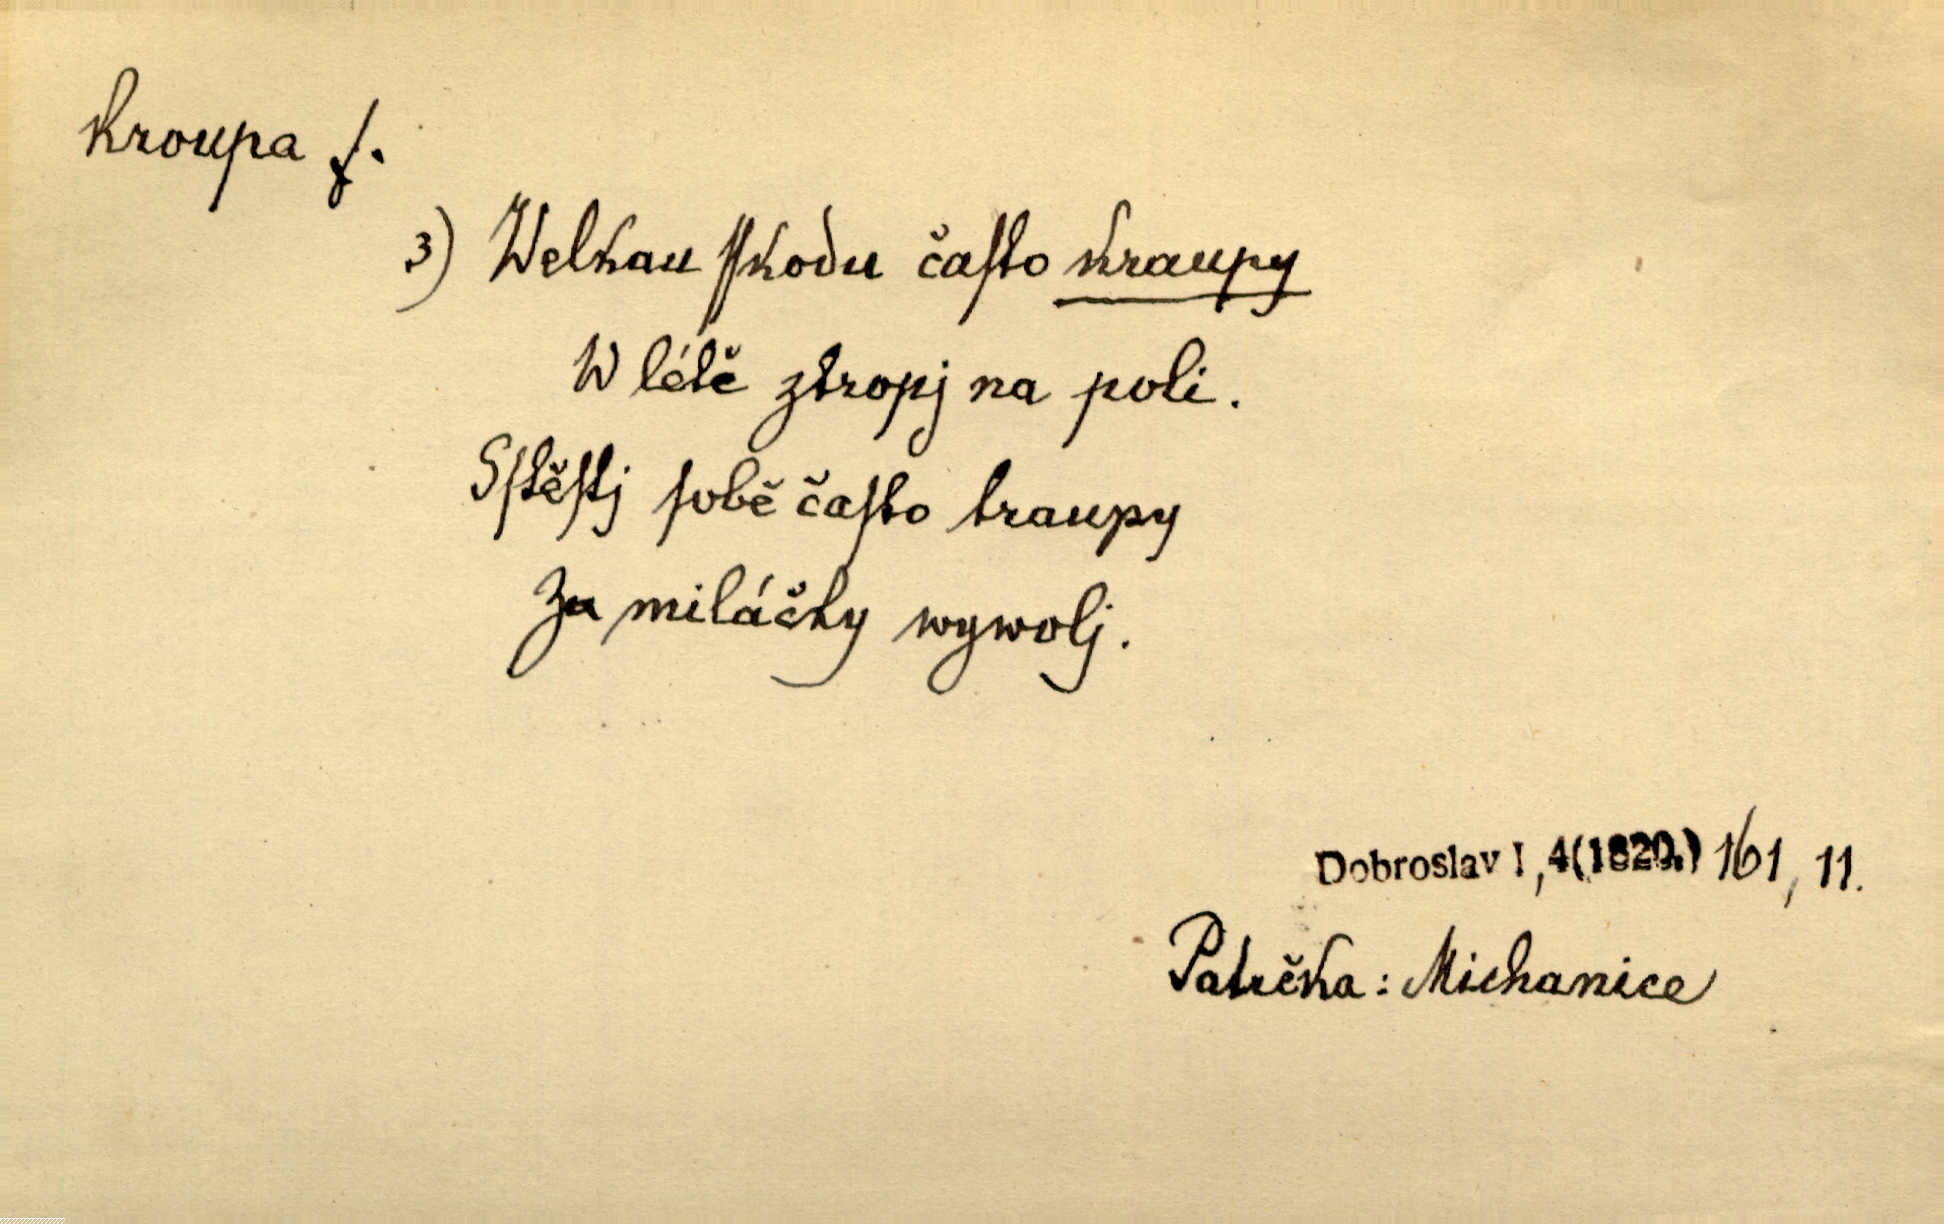 kroupa f.
3) Welkau ſſkodu čaſto kraupy
W létě ztropj na poli.
Sſtěſtj ſobě čaſto traupy
Za miláčky wywolj.
Dobroslav I, 4(1820.) 161, 11.
Patrčka: Michanice